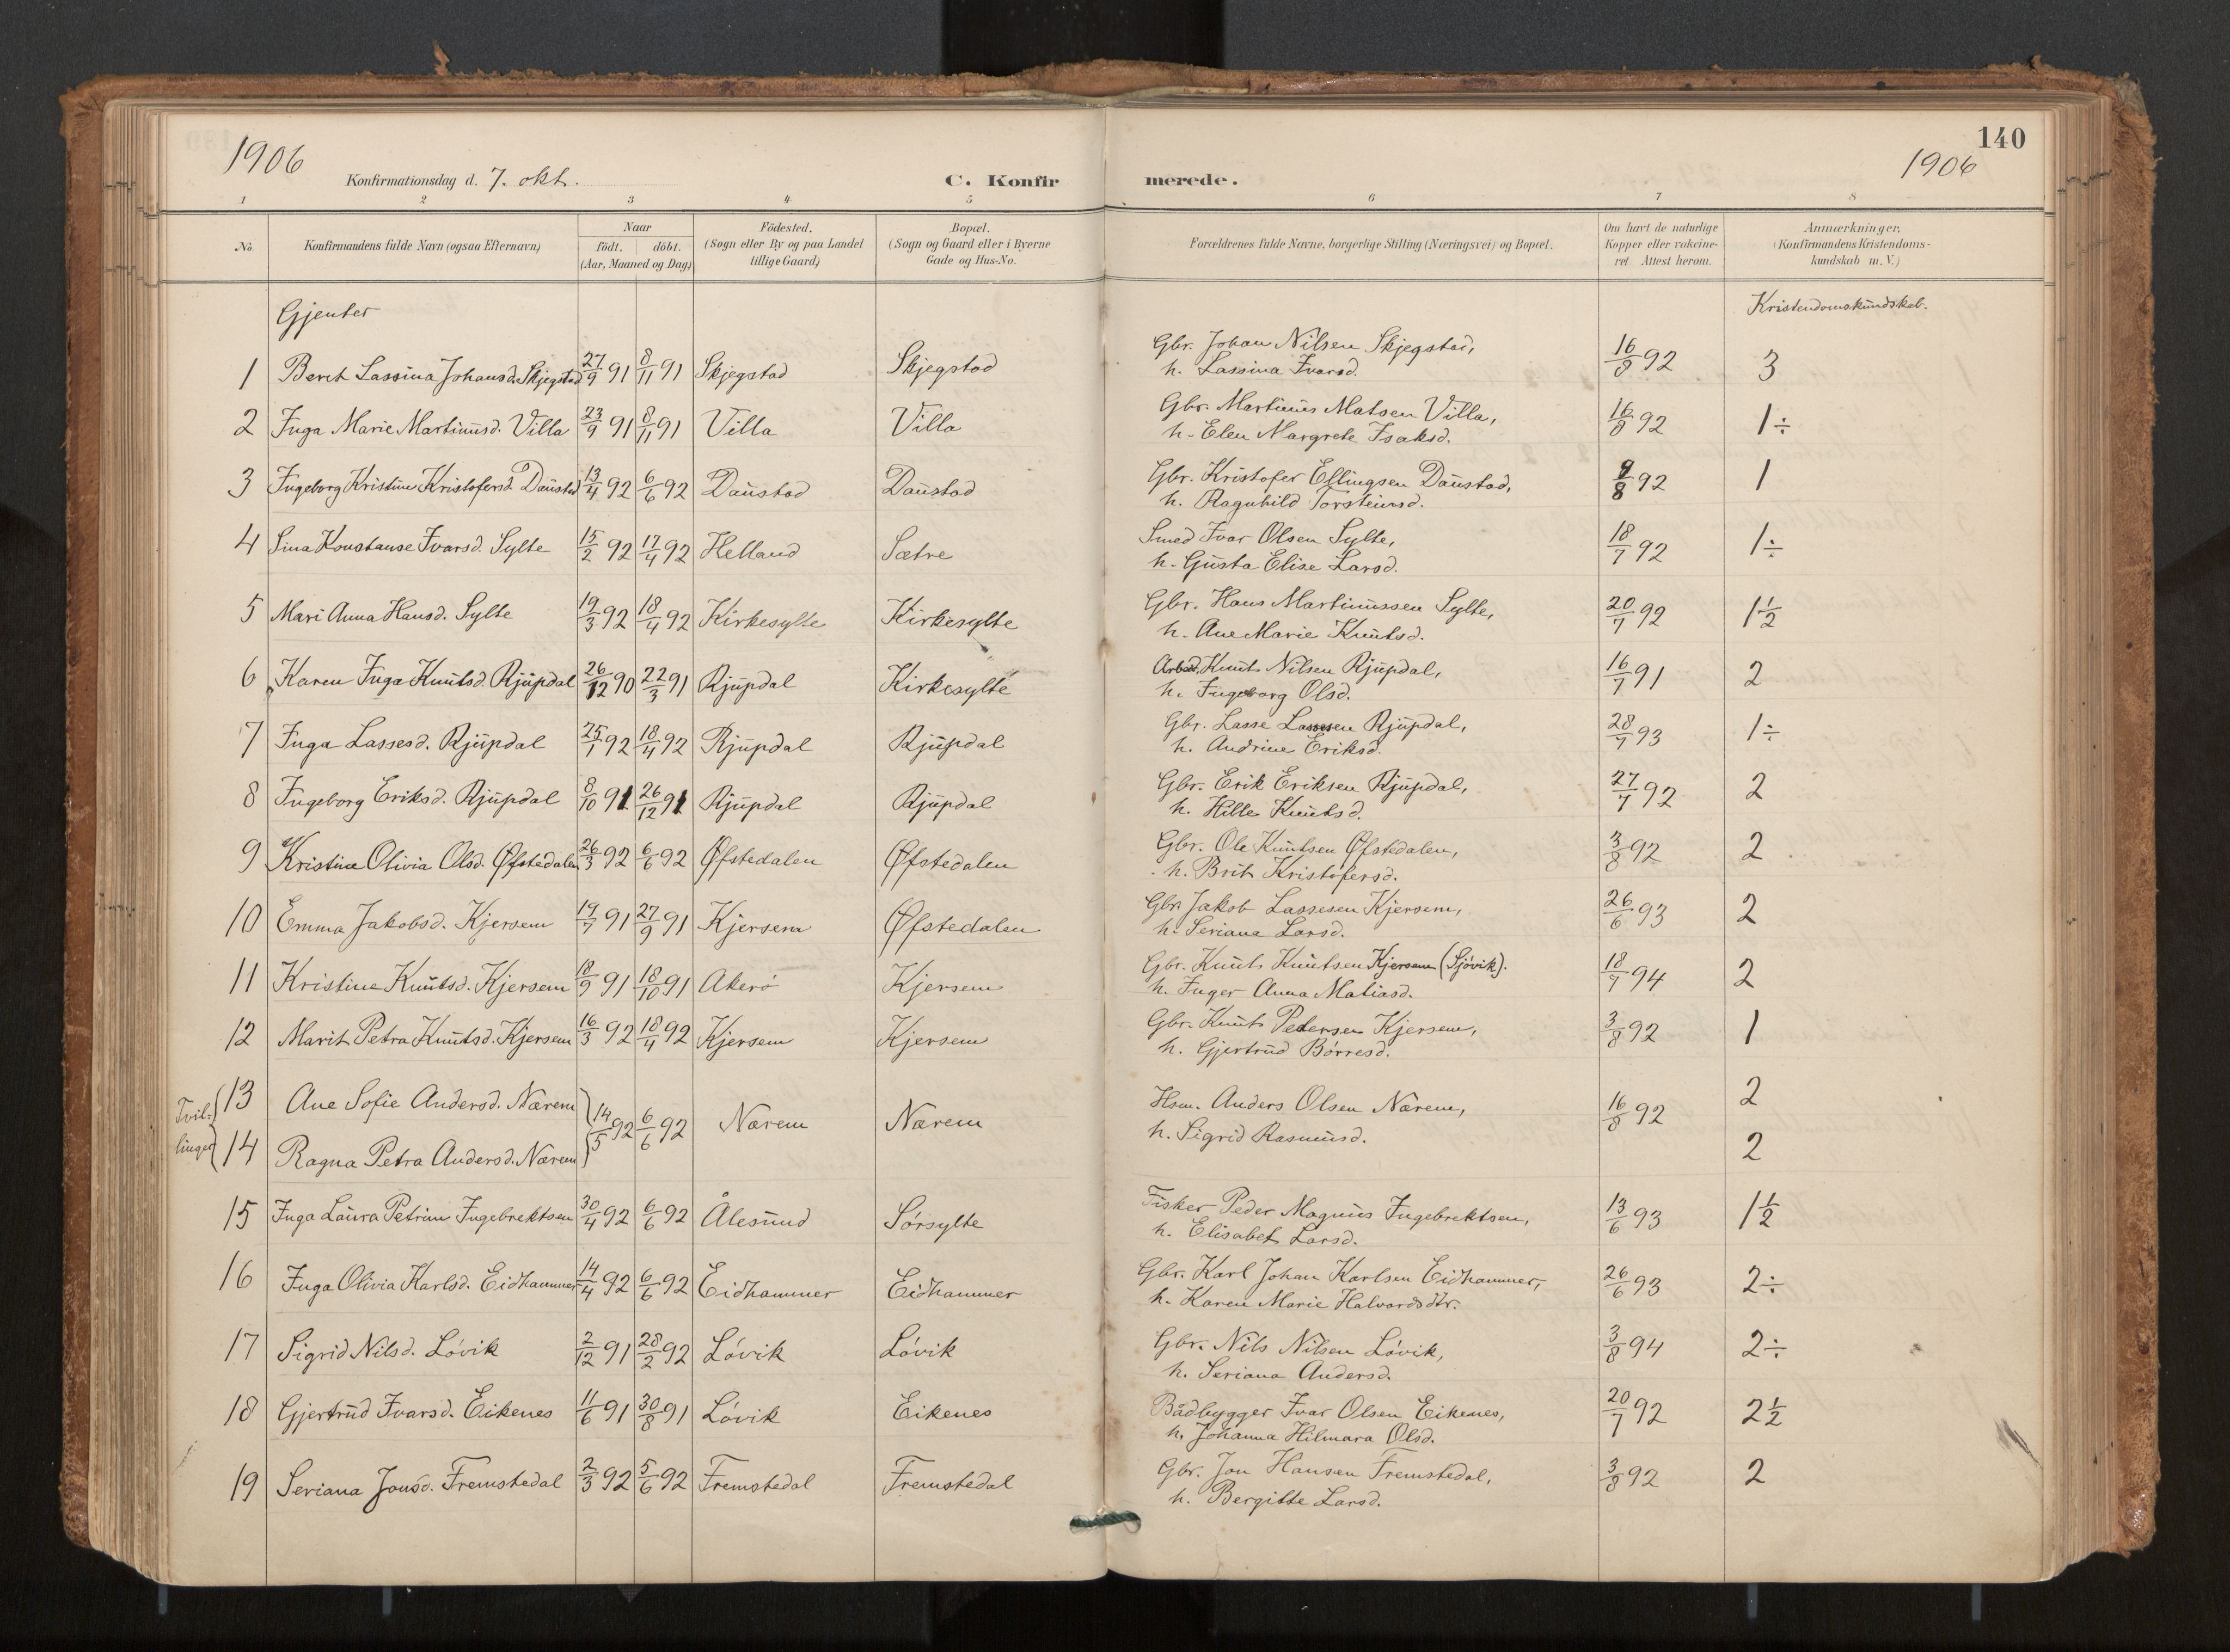 140
1906
1906
Konfirmationsdag d. 7. okt.
C. Konfirmerede.
1 2 3 4 5 6 7 8
No.
Konfirmandens fulde Navn (ogsaa Efternavn)
Naar
födt. döbt.
(Aar, Maaned og Dag)
Födested.
(Sogn eller By og paa Landet
tillige Gaard)
Bopæl.
(Sogn og Gaard eller i Byerne
Gade og Hus-No.
Forældrenes fulde Navne, borgerlige Stilling (Næringsvei) og Bopæl.
Om havt de naturlige
Kopper eller vakcine-
ret Attest herom.
Anmærkninger.
(Konfirmandens Kristendoms-
kundskab m. V.)
Gjenter
Kristendomskundskab.
1 Berit Lassina Johansd. Skjegstad 27/9 91 8/11 91 Skjegstad Skjegstad Gbr. Johan Nilsen Skjegstad, 16/8 92 3
h. Lassina Ivarsd.
2 Inga Marie Martinusd. Villa 23/9 91 8/11 91 Villa Villa Gbr. Martinus Matsen Villa, 16/8 92 1÷
h. Elen Margrete Isaksd.
3 Ingeborg Kristine Kristofersd. Daustad 13/4 92 6/6 92 Daustad Daustad Gbr. Kristofer Ellingsen Daustad, 9/8 92 1
h. Ragnhild Torsteinsd.
4 Sina Konstanse Ivarsd. Sylte 15/2 92 17/4 92 Helland Sætre Smed Ivar Olsen Sylte, 18/7 92 1÷
h. Gusta Elise Larsd.
5 Mari Anna Hansd. Sylte 19/3 92 18/4 92 Kirkesylte Kirkesylte Gbr. Hans Martinussen Sylte, 20/7 92 1½
h. Ane Marie Knutsd.
6 Karen Inga Knutsd. Rjupdal 26/12 90 22/3 91 Rjupdal Kirkesylte Arbd. Knut Nilsen Rjupdal, 16/7 91 2
h. Ingeborg Olsd.
7 Inga Lassesd. Rjupdal 25/1 92 18/4 92 Rjupdal Rjupdal Gbr. Lasse Lassesen Rjupdal, 28/7 93 1÷
h. Andrine Eriksd.
8 Ingeborg Eriksd. Rjupdal 8/10 91 26/12 91 Rjupdal Rjupdal Gbr. Erik Eriksen Rjupdal, 27/7 92 2
h. Hille Knutsd.
9 Kristine Olivia Olsd. Øfstedalen 26/3 92 6/6 92 Øfstedalen Øfstedalen Gbr. Ole Knutsen Øfstedalen, 3/8 92 2
h. Brit Kristofersd.
10 Emma Jakobsd. Kjersem 19/7 91 27/9 91 Kjersem Øfstedalen Gbr. Jakob Lassesen Kjersem, 26/6 93 2
h. Seriana Larsd.
11 Kristine Knutsd. Kjersem 18/9 91 18/10 91 Akerö Kjersem Gbr. Knut Knutsen Kjersem (Sjövik). 18/7 94 2
h. Inger Anna Matiasd.
12 Marit Petra Knutsd. Kjersem 16/3 92 18/4 92 Kjersem Kjersem Gbr. Knut Pedersen Kjersem, 3/8 92 1
h. Gjertrud Börresd.
Tvil-
linger
13 Ane Sofie Andersd. Nærem 14/5 92 6/6 92 Nærem Nærem Hsm. Anders Olsen Nærem, 16/8 92 2
14 Ragna Petra Andersd. Nærem h. Sigrid Rasmusd. 2
15 Inga Laura Petrine Ingebrektsen 30/4 92 6/6 92 Ålesund Sörsylte Fisker Peder Magnus Ingebrektsen, 13/6 93 1½
h. Elisabet Larsd.
16 Inga Olivia Karlsd. Eidhammer 14/4 92 6/6 92 Eidhammer Eidhammer Gbr. Karl Johan Karlsen Eidhammer, 26/6 93 2÷
h. Karen Marie Halvardsdtr.
17 Sigrid Nilsd. Lövik 2/12 91 28/2 92 Lövik Lövik Gbr. Nils Nilsen Lövik, 3/8 94 2÷
h. Seriana Andersd.
18 Gjertrud Ivarsd. Eikenes 11/6 91 30/8 91 Lövik Eikenes Bådbygger Ivar Olsen Eikenes, 20/7 92 2½
h. Johanna Hilmara Olsd.
19 Seriana Jonsd. Fremstedal 2/3 92 5/6 92 Fremstedal Fremstedal Gbr. Jon Hansen Fremstedal, 3/8 92 2
h. Bergitte Larsd.